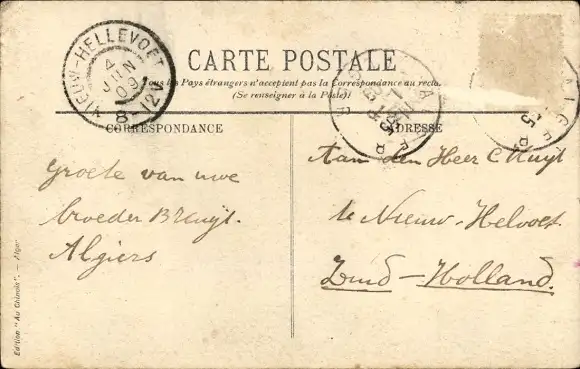 NIEUW-HELLEVOET
4 JUN 09
8-12V
CARTE POSTALE
Tous les Pays étrangers n'acceptent pas la Correspondance au recto.
(Se renseigner à la Poste)
CORRESPONDANCE
ADRESSE
ALGER
Groete van uwe
broeder B Kruyt.
Algiers
Aan den Heer C Kruyt
te Nieuw-Helvoet
Zuid-Holland.
Edition "Au Chinois". - Alger